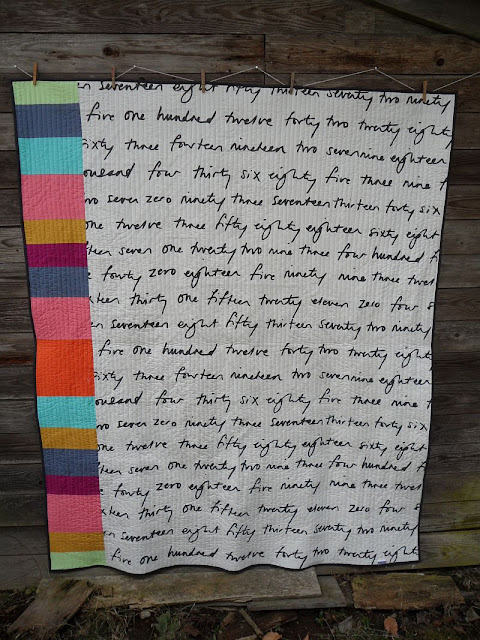 seventeen eight fifty thirteen seventy two ninety
five one hundred twelve forty two twenty eighty
sixty three fourteen nineteen two seven nine eighteen
thousand four thirty six eighty five three nine
two seven zero ninety three seventeen thirteen forty six
one twelve three fifty eighty eighteen sixty eight
seven one twenty two nine three four hundred
forty zero eighteen five ninety nine three
thirty one fifteen twenty eleven zero four
seventeen eight fifty thirteen seventy two ninety
five one hundred twelve forty two twenty eighty
sixty three fourteen nineteen two seven nine eighteen
thousand four thirty six eighty five three nine
two seven zero ninety three seventeen thirteen forty six
one twelve three fifty eighty eighteen sixty eight
seven one twenty two nine three four hundred
forty zero eighteen five ninety nine three
thirty one fifteen twenty eleven zero four
seventeen eight fifty thirteen seventy two ninety
five one hundred twelve forty two twenty eighty